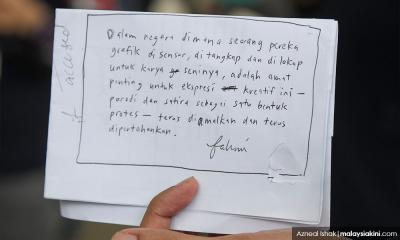 Dalam negara dimana seorang pereka
grafik disensor, ditangkap dan dilokap
untuk karya seninya, adalah amat
penting untuk ekspresi kreatif ini -
parodi dan satira sebagai satu bentuk
protes - terus diamalkan dan terus
dipertahankan.
fahmi
if accused
Azneal Ishak | malaysiakini